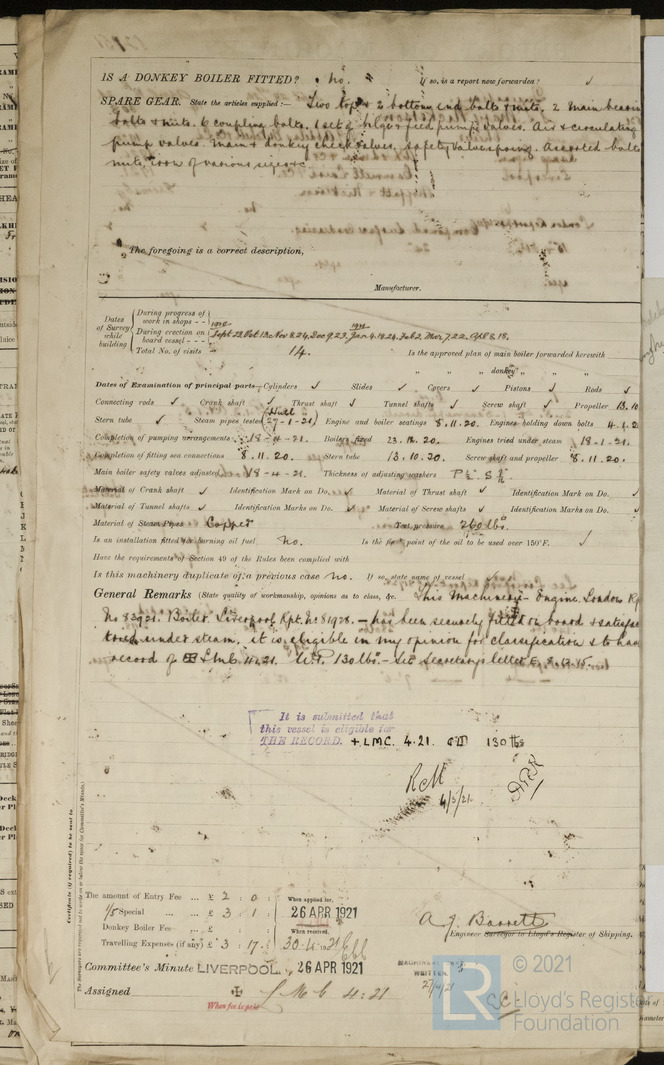 IS A DONKEY BOILER FITTED? No. If so, is a report now forwarded?
SPARE GEAR. State the articles supplied:— Two top & 2 bottom end bolts & nuts, 2 main bearin
bolts & nuts. 6 coupling bolts. 1 set of bilge & feed pump valves. Air & circulating
pump valves. Main & donkey check valves, safety valve spring. Assorted bolts
nuts, iron of various sizes &c
The foregoing is a correct description,
Manufacturer.
Dates of Survey while building
During progress of work in shops - -
During erection on board vessel - - - 1920 Sept 28. Oct 13. Nov 8, 24, Dec 9, 23. 1921 Jan 4. 18. 24. Feb 2. Mar 7. 22. Apl 8. 18.
Total No. of visits 14. Is the approved plan of main boiler forwarded herewith
" " " donkey " " "
Dates of Examination of principal parts—Cylinders ✓ Slides ✓ Covers ✓ Pistons ✓ Rods ✓
Connecting rods ✓ Crank shaft ✓ Thrust shaft ✓ Tunnel shafts ✓ Screw shaft ✓ Propeller 13.10
Stern tube ✓ Steam pipes tested (Hull 27-1-21) Engine and boiler seatings 8.11.20. Engines holding down bolts 4.1.2
Completion of pumping arrangements 18-4-21. Boilers fixed 23.12.20. Engines tried under steam 18-1-21.
Completion of fitting sea connections 8.11.20. Stern tube 13.10.20. Screw shaft and propeller 8.11.20.
Main boiler safety valves adjusted 18-4-21. Thickness of adjusting washers
Material of Crank shaft ✓ Identification Mark on Do. ✓ Material of Thrust shaft ✓ Identification Mark on Do. ✓
Material of Tunnel shafts ✓ Identification Marks on Do. ✓ Material of Screw shafts ✓ Identification Marks on Do. ✓
Material of Steam Pipes Copper Test pressure 260 lbs.
Is an installation fitted for burning oil fuel No. Is the flash point of the oil to be used over 150°F. ✓
Have the requirements of Section 49 of the Rules been complied with
Is this machinery duplicate of a previous case No. If so, state name of vessel
General Remarks (State quality of workmanship, opinions as to class, &c. This Machinery - Engine London Rp
No 83921. Boiler. Liverpool Rpt. No 81928. - has been securely fitted on board & satisfac
tried under steam, it is eligible in my opinion for classification & to have
record of ✠ LMC 4.21. W.P. 130 lbs. - See Secretary's letter E.
It is submitted that
this vessel is eligible for
THE RECORD. + LMC. 4.21. CD 130 lbs
RCM
4/5/21
Certificate (if required) to be sent to
The amount of Entry Fee ... £ 2 : 0 : When applied for,
1/5 Special ... ... £ 3 : 1 : 26 APR 1921
Donkey Boiler Fee ... £ : : When received,
Travelling Expenses (if any) £ 3 : 17 : 30.4.21
A J Barrett
Engineer Surveyor to Lloyd's Register of Shipping.
Committee's Minute LIVERPOOL. 26 APR 1921
Assigned ✠ LMC 4:21
When fee is paid
MACHINERY
WRITTEN
27/4/21
LR
© 2021
Lloyd's Registe
Foundation